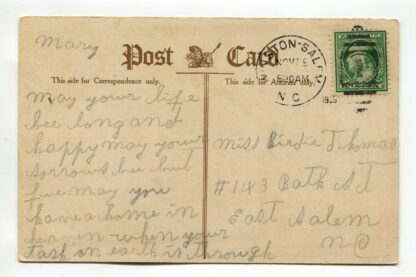 Mary
Post Card
This side for Correspondence only.
This side for Address only.
WINSTON-SALEM
NOV 15
830AM
N.C.
may your life
bee long and
happy may your
sorrows bee but
few may you
have a home in
heaven when your
task on earth is through
Miss Birdie Thomas
#143 Bath St
East Salem
NC